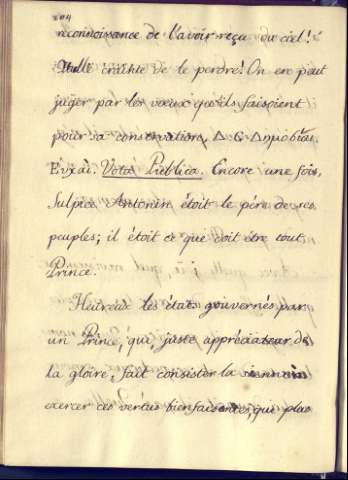 204
reconnoissance de l'avoir reçu du ciel!
crainte de le perdre! On en peut
juger par les vœux qu'ils faisoient
pour sa conservation, Δ. G. Δημοσίαι
Ευχαί. Vota Publica. Encore une fois,
Sulpice Antonin étoit le père de ses
peuples; il étoit ce que doit être tout
Prince.
Heureux les états gouvernés par
un Prince, qui, juste appréciateur de
la gloire, fait consister la sienne à
exercer ces vertus bienfaisantes, qui plus